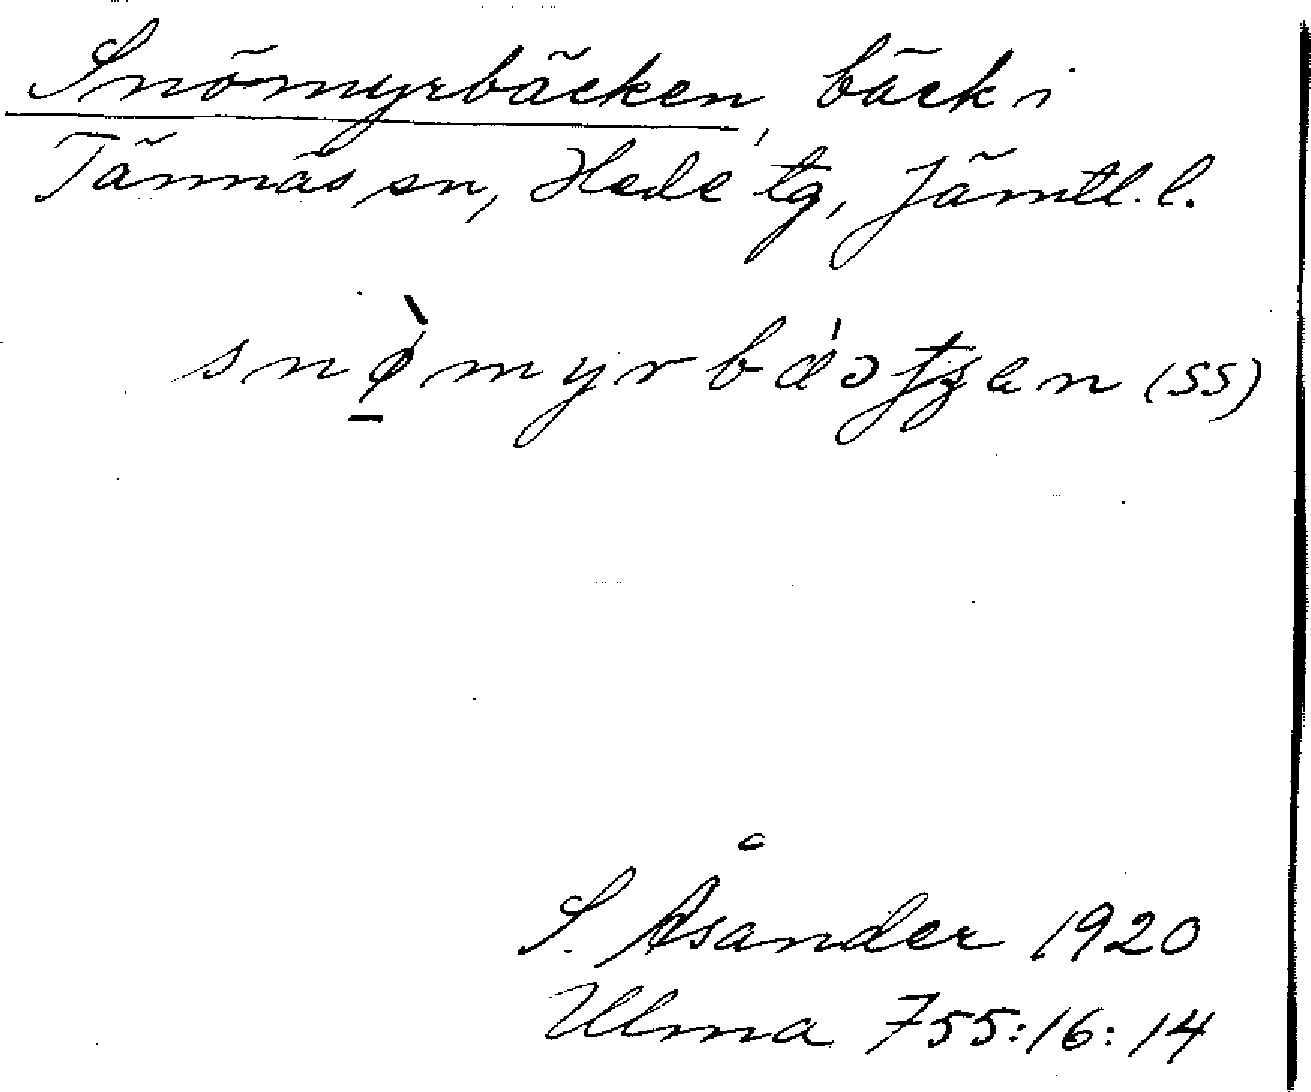 Snömyrbäcken, bäck i
Tännäs sn, Hede tg, Jämtl. l.
(ss)
S. Åsander 1920
Ulma 755:16:14